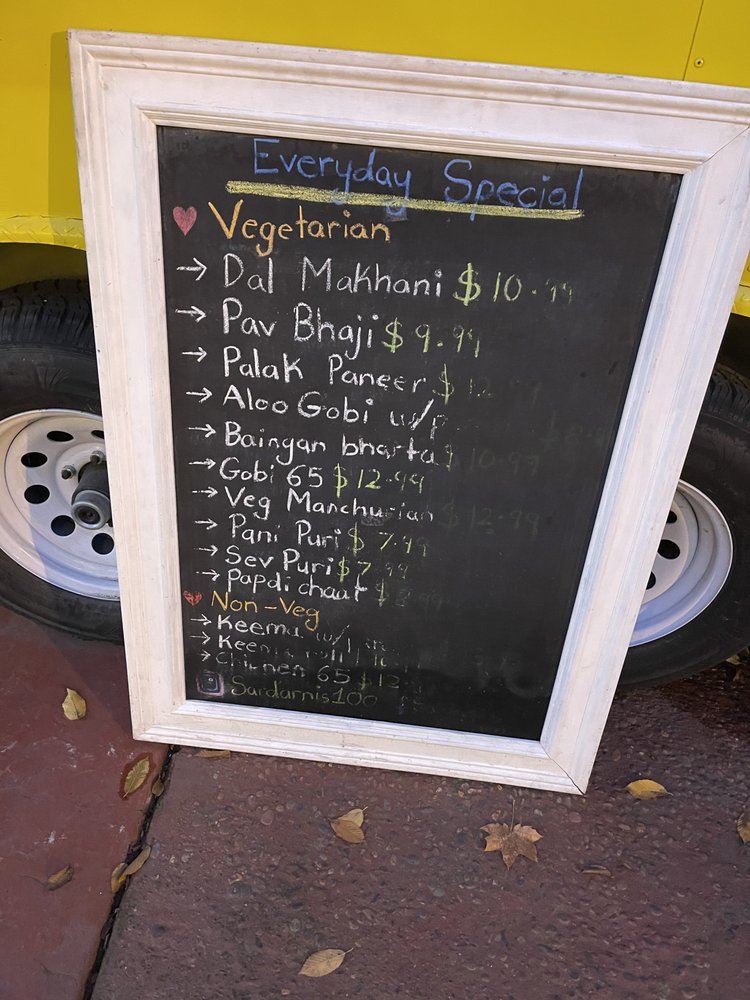 Everyday Special
Vegetarian
→ Dal Makhani $10.99
→ Pav Bhaji $9.99
→ Palak Paneer $12.99
→ Aloo Gobi w/p
→ Baingan bharta $10.99
→ Gobi 65 $12.99
→ Veg Manchurian $12.99
→ Pani Puri $7.99
→ Sev Puri $7.99
→ Papdi chaat $8.99
Non-Veg
→ Keema w/
→ Keema
→ Chicken 65 $12
Sardarnis100